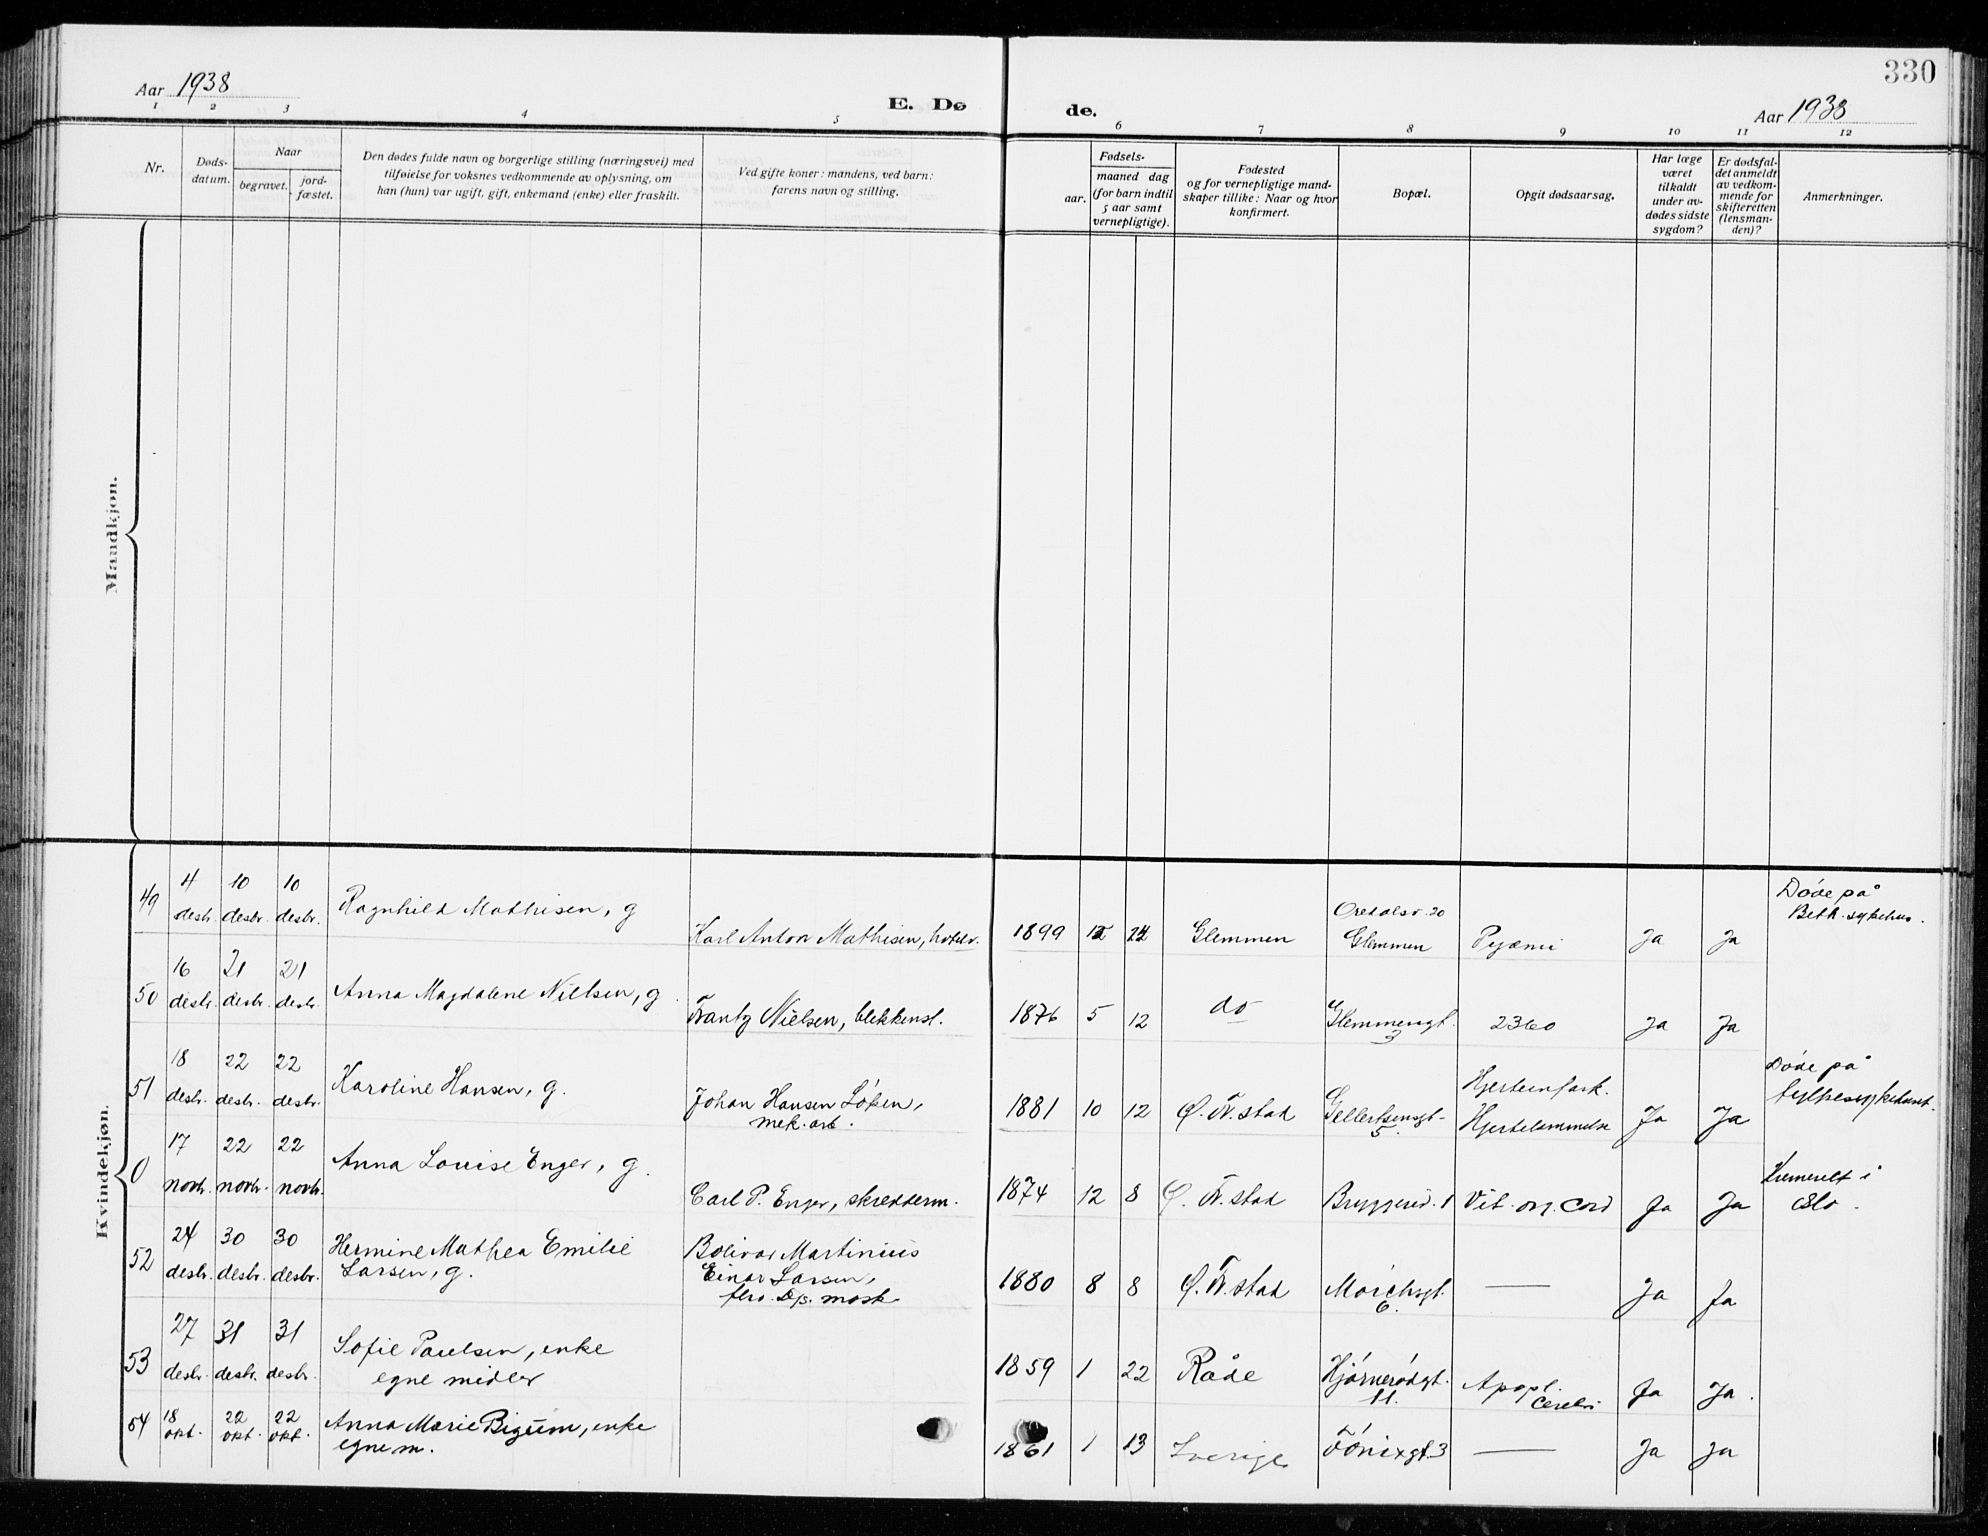 330
Aar 1938
E. Dø
de.
Aar 1938
1 2 3 4 5 6 7 8 9 10 11 12
Nr.
Døds-
datum.
Naar
begravet.
jord-
fæstet.
Den dødes fulde navn og borgerlige stilling (næringsvei) med
tilføielse for voksnes vedkommende av oplysning, om
han (hun) var ugift, gift, enkemand (enke) eller fraskilt.
Ved gifte koner: mandens, ved barn:
farens navn og stilling.
Fødsels-
aar.
maaned dag
(for barn indtil
5 aar samt
vernepligtige).
Fødested
og for vernepligtige mand-
skaper tillike: Naar og hvor
konfirmert.
Bopæl.
Opgit dødsaarsag.
Har læge
været
tilkaldt
under av-
dødes sidste
sygdom?
Er dødsfal-
det anmeldt
av vedkom-
mende for
skifteretten
(lensman-
den)?
Anmerkninger.
Mandkjøn.
Kvindekjøn.
49
4 desbr.
10 desbr.
10 desbr.
Ragnhild Mathisen, g
Karl Anton Mathisen,
1899 12 24
Glemmen
Glemmen
Pyæmi
Ja
Ja
Døde på
Beth. sykehus.
50
16 desbr.
21 desbr.
21 desbr.
Anna Magdalene Nielsen, g.
Frantz Nielsen, blikkensl.
1876 5 12
do
Glemmengt.
3
2360
Ja
Ja
51
18 desbr.
22 desbr.
22 desbr.
Karoline Hansen, g.
Johan Hansen Løken,
mek. arb.
1881 10 12
Ø. Fr.stad
Gellertsensgt.
5.
Hjerteinfark.
Ja
Ja
Døde på
fylkessykehuset.
0
17 novbr.
22 novbr.
22 novbr.
Anna Louise Enger, g.
Carl P. Enger, skredderm.
1874 12 8
Ø. Fr.stad
Bryggerid. 1
Vit. org. cord
Ja
Ja
Kremert i
Oslo.
52
24 desbr.
30 desbr.
30 desbr.
Hermine Mathea Emilie
Larsen, g.
Bolivar Martinius
Einar Larsen,
1880 8 8
Ø. Fr.stad
6.
—
Ja
Ja
53
27 desbr.
31 desbr.
31 desbr.
Sofie Paulsen, enke
egne midler
1859 1 22
Råde
Hjørnerødgt.
11.
Apopl.
cerebri
Ja
Ja.
54
18 okt.
22 okt.
22 okt.
Anna Marie Bigum, enke
egne m.
1861 1 13
Sverige
Fønixgt. 3
—
Ja
Ja